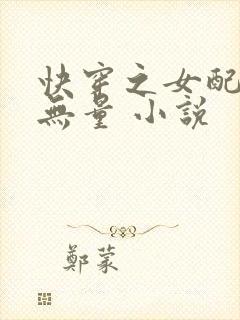 快穿之女配
無量 小說
鄭蒙